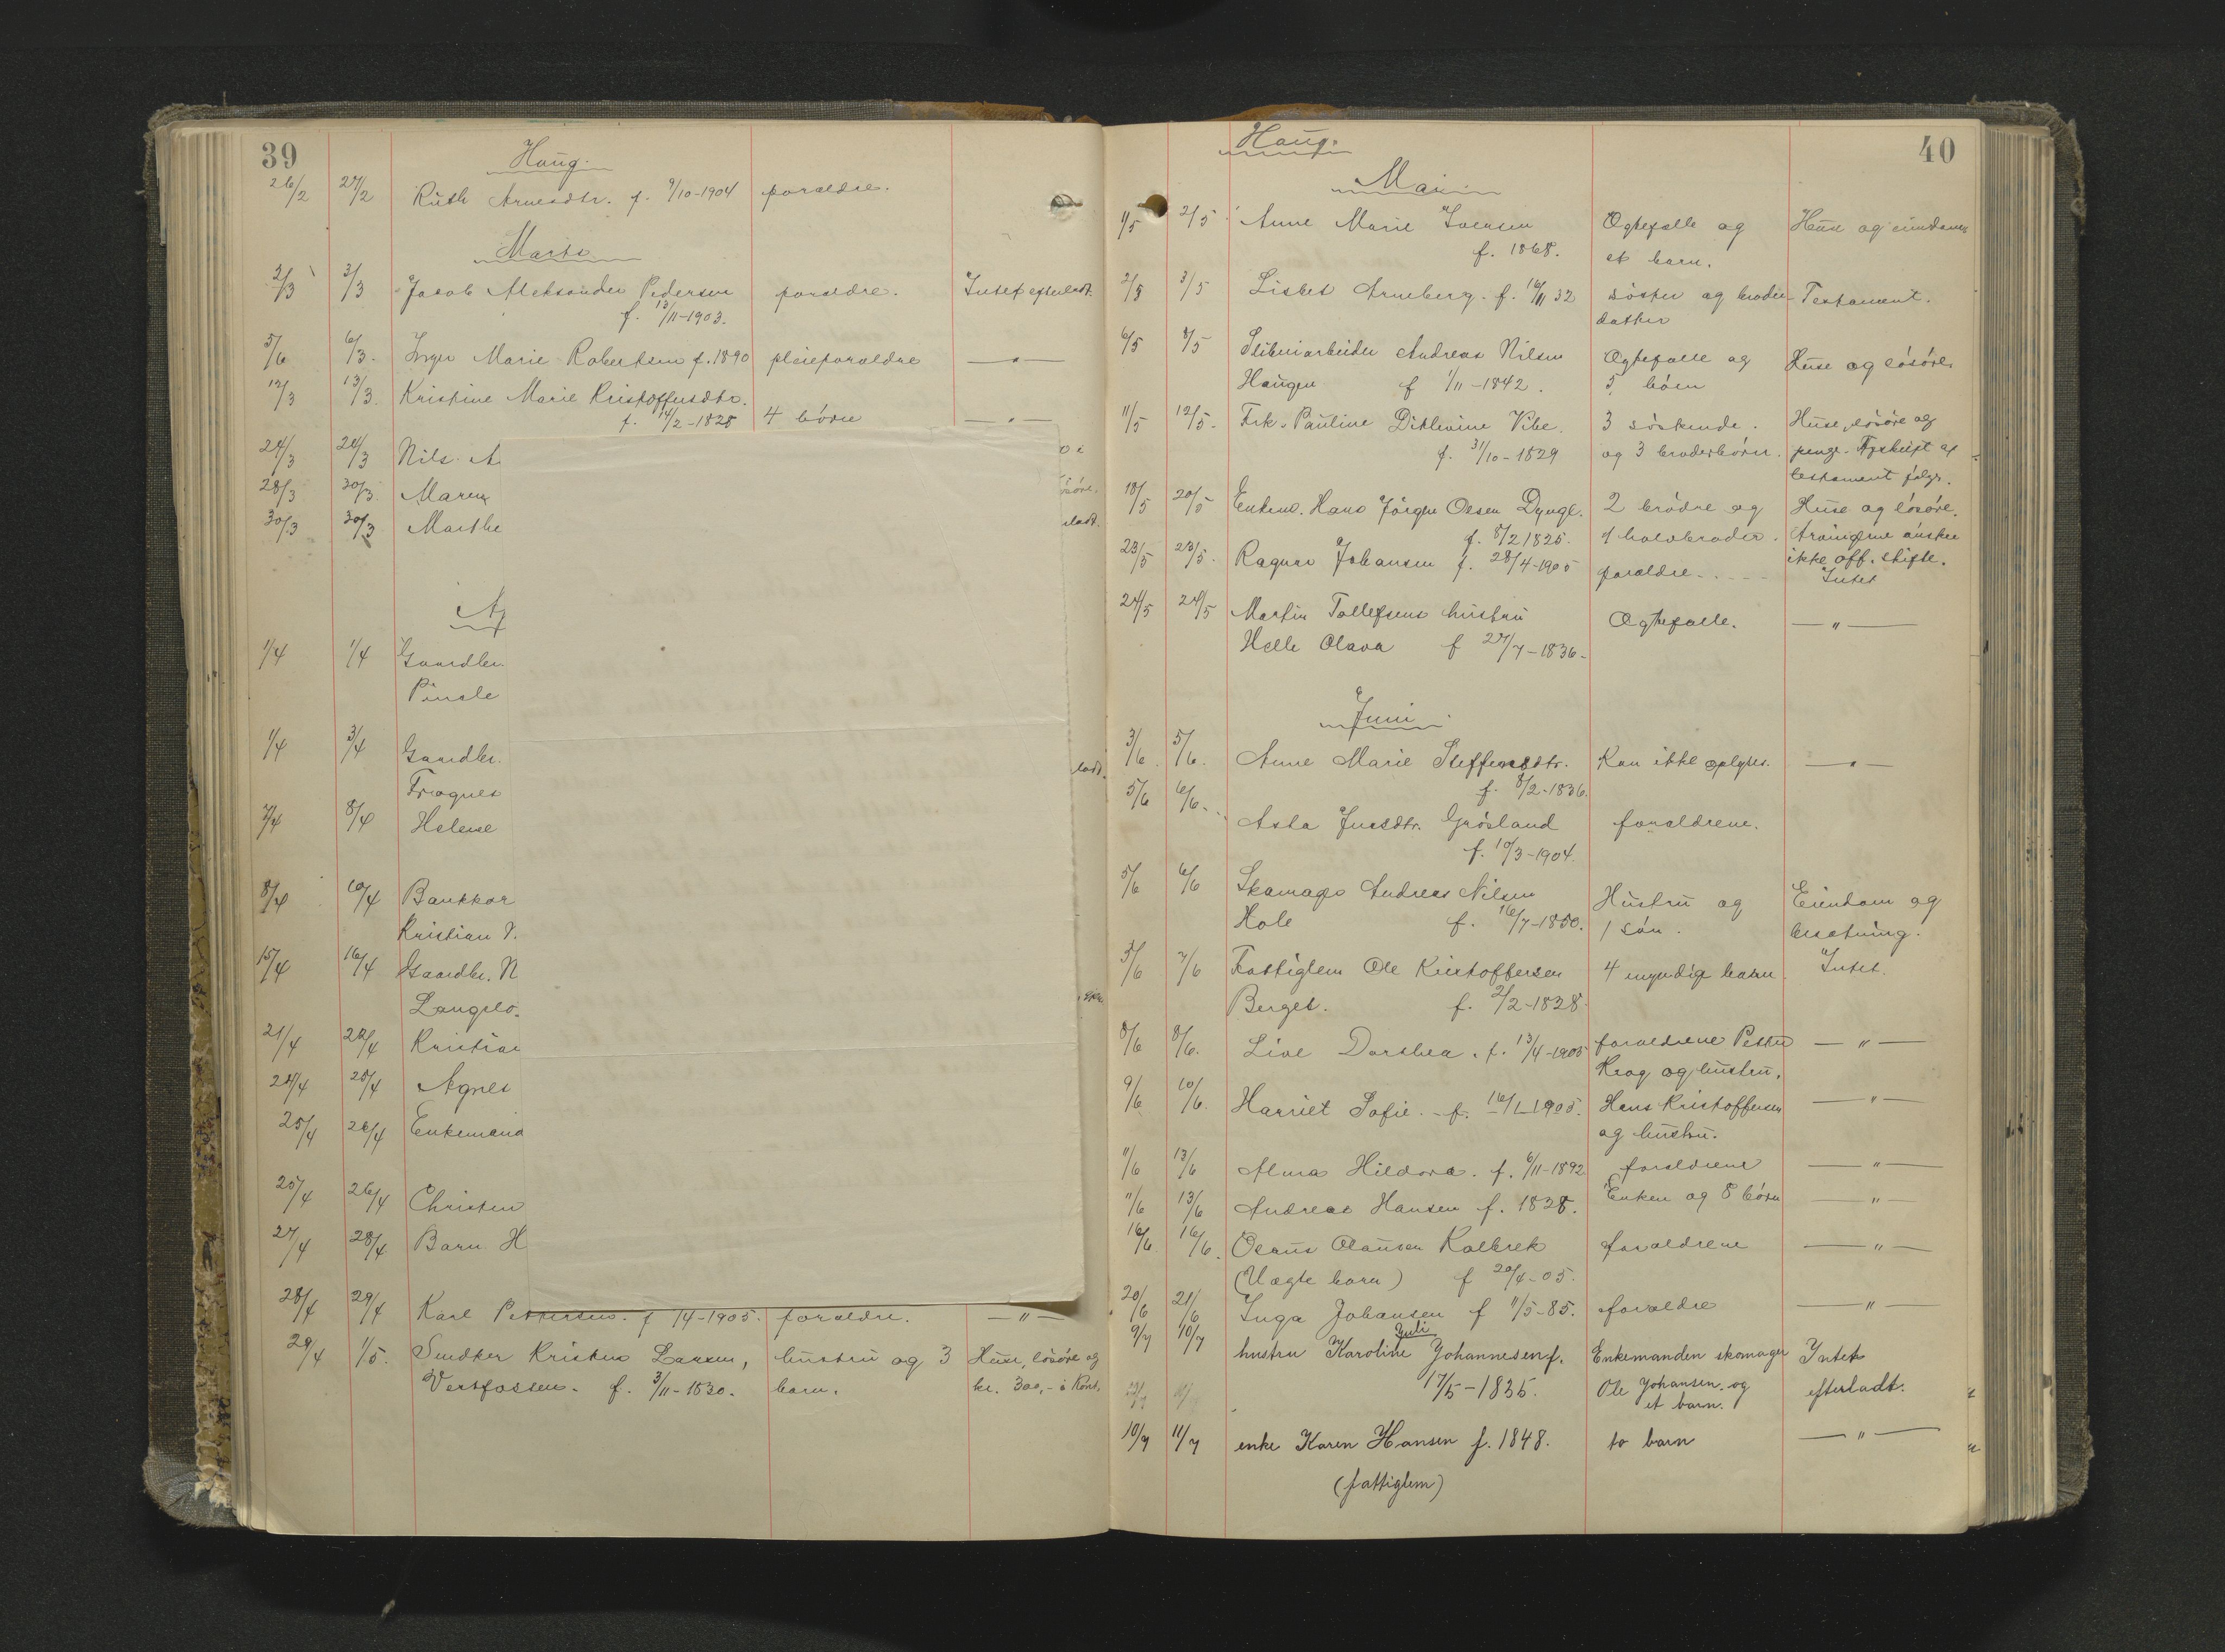 39
Haug.
26/2 27/2 Ruth Arnesdtr. f. 9/10-1904 foraldre.
Marts
2/3 3/3 Jacob Aleksander Pedersen foraldre. Intet efterladt.
f. 13/11-1903.
5/6 6/3. Inger Marie Robertsen f. 1890 pleieforaldre —„—
12/3 13/3. Kristine Marie Kristoffersdtr.
f. 14/2-1828 4 börn —„—
24/3 24/3 Nils A
28/3 30/3. Maren
30/3 30/3 Marthe
ladt.
A
1/4 1/4 Gaardbr.
1/4 3/4 Gaardbr.
ladt.
Fragnes
7/4 8/4 Helene
8/4 10/4 Bankkor
Kristian
15/4 16/4 Gaardbr. N
Langslo
21/4 22/4 Kristia
24/4 25/4 Agnes
25/4 26/4 Enkemand
25/4 26/4 Christen
27/4 28/4 Barn H
28/4 29/4 Karl Pettersen. f /4-1905. foraldre. —„—
29/4 1/5. Snedker Kristen Larsen, hustru og 3 Huse, lösöre og
Vestfossen. f. 3/11-1830. barn. kr. 300,- i Kont.
40
Haug.
Mai
1/5 2/5 Anne Marie Iversen Ogtefalle og Huse og eiendom
f. 1868. et barn.
2/5 3/5 Lisbet Arneberg. f. 16/11 32 söster og broder- Testament.
datter
6/5 8/5 Sliberiarbeider Andreas Nilsen Ogtefalle og Huse og lösöre
Haugen f 1/11-1842. 5 börn
11/5 12/5. Frk. Pauline Ditlevine Vibe. 3 söskende. Huse, lösöre og
f. 31/10-1829 og 3 broderbörn. penge. Afskrift af
testament fölger.
18/5 20/5 Enkem. Hans Jörgen Olsen Dynge. 2 brödre og Huse og lösöre.
f. 8/2 1825. 1 halvbroder. Arvingerne önsker
23/5 23/5. Ragnar Johansen f. 28/4-1905 foraldre. ikke off. skifte.
Intet
24/5 24/5 Martin Tollefsens hustru Ogtefalle. —„—
Helle Olava f 27/7-1836.
Juni
3/6. 5/6. Anne Marie Steffensdtr. Kan ikke oplyses. —„—
f. 8/2-1836.
5/6 6/6. Asta Juesdtr. Grösland foraldrene.
f. 10/3-1904.
5/6 6/6 Skomager Andreas Nilsen Hustru og Eiendom og
Hole f. 16/7-1850. 1 sön. besætning.
3/6 7/6 Fattiglem Ole Kristoffersen 4 myndige barn Intet.
Berget. f. 2/2-1838.
8/6 8/6. Live Dorthea. f. 13/4-1905 foraldrene Petter —„—
Krog og hustru.
9/6 10/6. Harriet Sofie. f. 16/1-1905. Hans Kristoffersen —„—
og hustru.
11/6 13/6 Alma Hildora. f. 6/11-1892 foraldrene —„—
11/6 13/6 Andreas Hansen f. 1828. Enken og 8 börn —„—
16/6 16/6. Olaus Olausen Kolbrek foraldrene —„—
(Uægte barn) f 20/4-05.
20/6 21/6 Inga Johansen f 11/5-85. foraldre —„—
Juli
9/7 10/7 hustru Karoline Johannesen f. Enkemanden skomager Intet
17/5-1835. Ole Johansen og efterladt.
et barn.
10/7 11/7 enke Karen Hansen f. 1848. to barn —„—
(fattiglem)